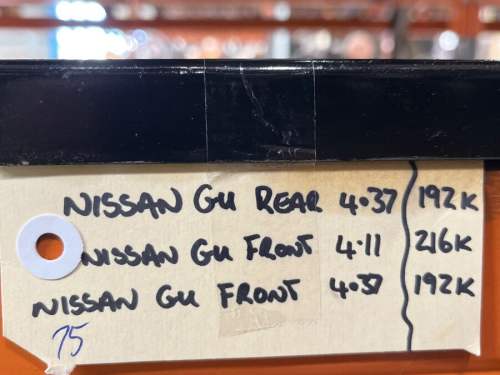 NISSAN GU REAR 4.37 192K
NISSAN GU FRONT 4.11 216K
NISSAN GU FRONT 4.37 192K
75